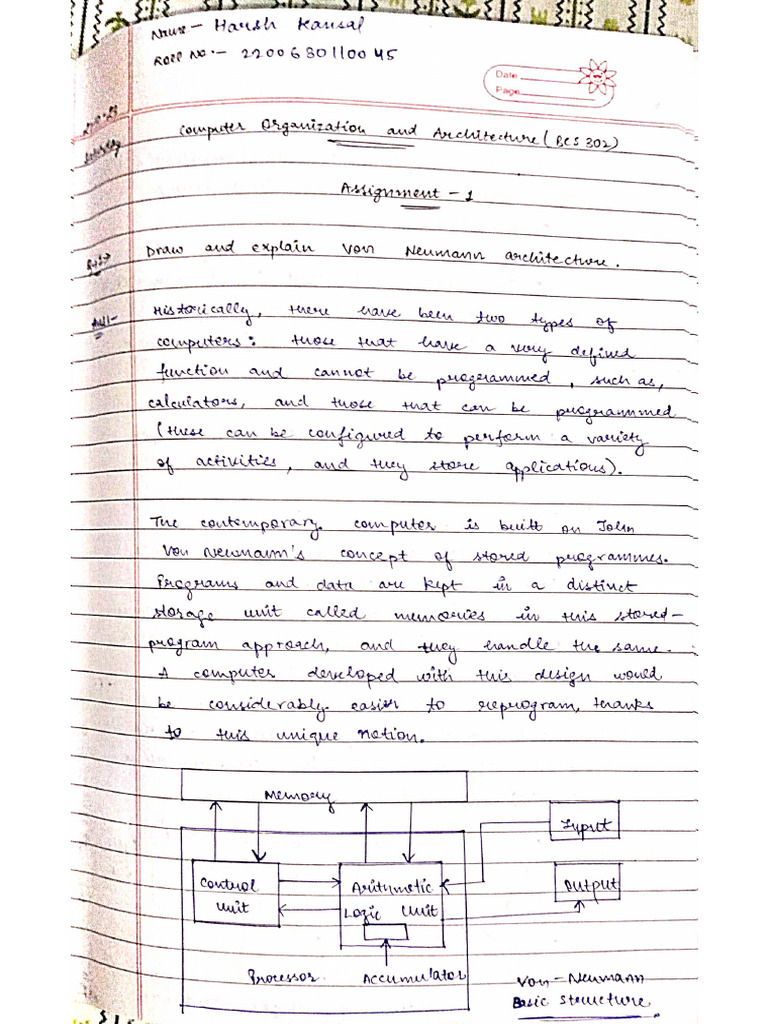 Name - Harsh Kansal
Roll No. - 2200680110045
Date
Page
Saturday
Computer Organization and Architecture (BCS 302)
Assignment - 1
Draw and explain Von Neumann architecture.
Historically, there have been two types of
computers: those that have a very defined
function and cannot be programmed, such as,
calculators, and those that can be programmed
(these can be configured to perform a variety
of activities, and they store applications).
The contemporary computer is built on John
Von Neumann's concept of stored programmes.
Programs and data are kept in a distinct
storage unit called memories in this stored-
program approach, and they handle the same.
A computer developed with this design would
be considerably easier to reprogram, thanks
to this unique notion.
Memory
Input
Control
Unit
Arithmetic
Logic Unit
Output
Processor
Accumulator
Von - Neumann
Basic structure